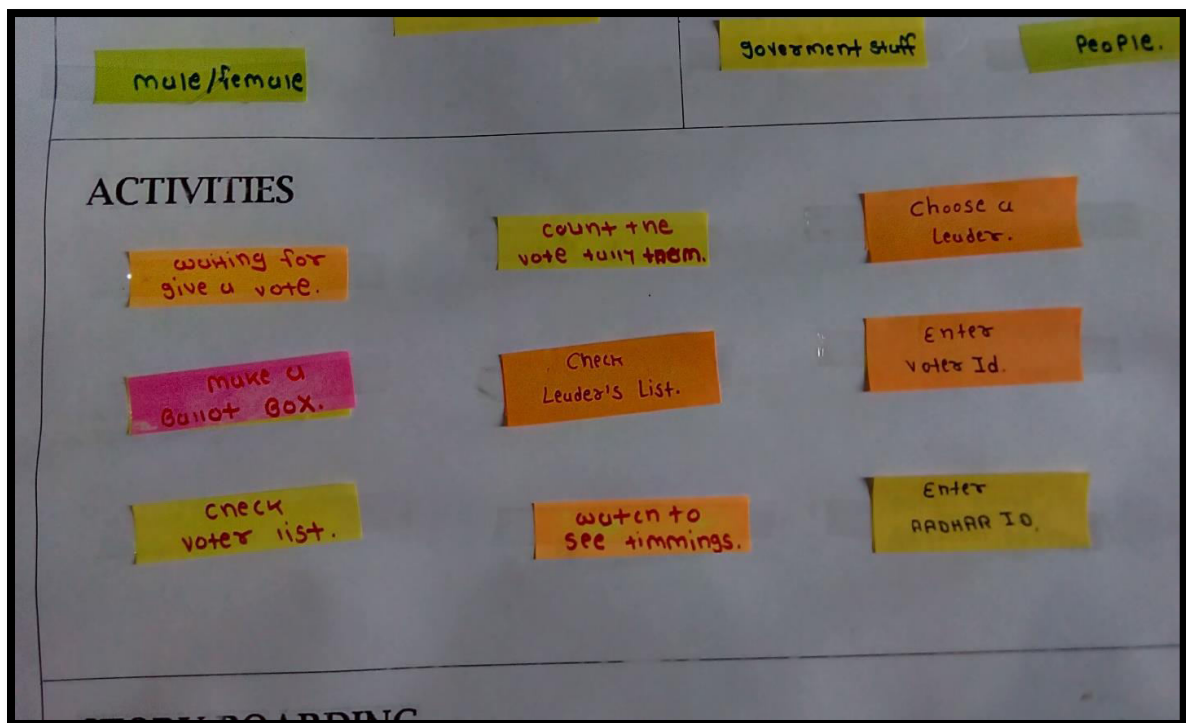 male/female
goverment stuff
People.
ACTIVITIES
waiting for
give a vote.
count the
vote tully them.
Choose a
Leader.
make a
Ballot Box.
Check
Leader's List.
Enter
Voter Id.
check
voter list.
watch to
see timmings.
Enter
AADHAR ID.
STORY BOARDING